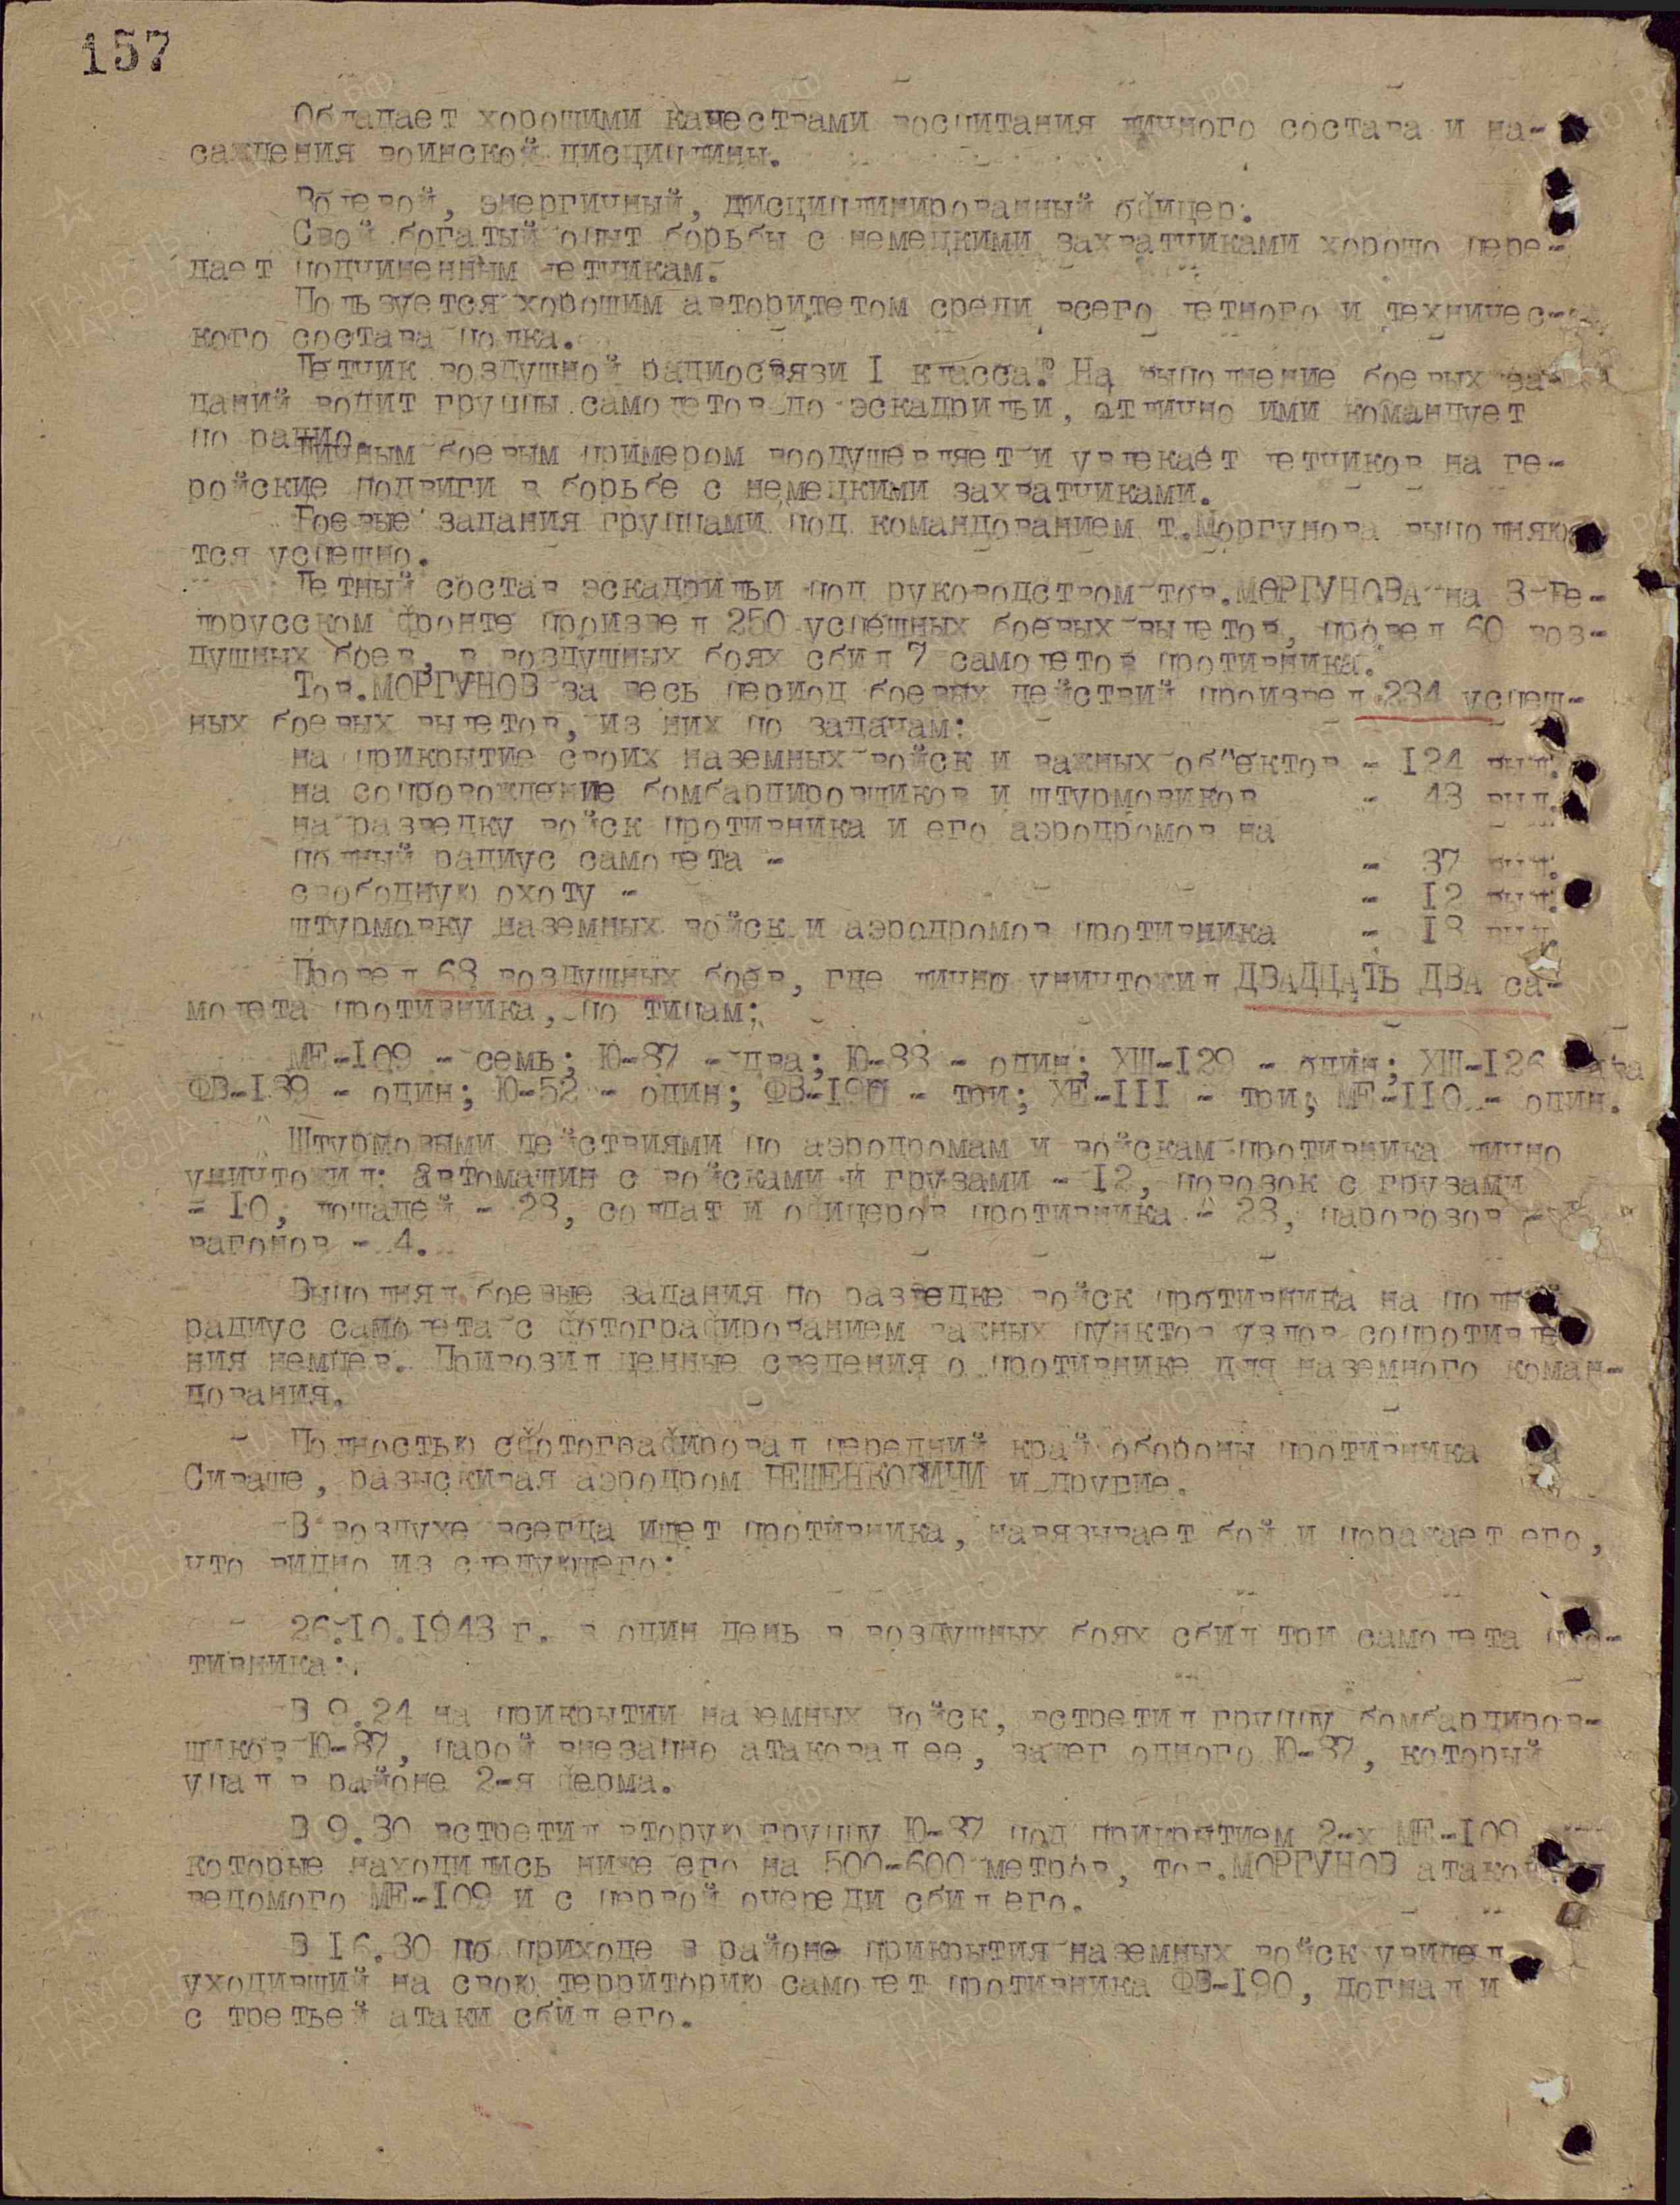 157
Обладает хорошими качествами воспитания личного состава и на-
саждения воинской дисциплины.
Волевой, энергичный, дисциплинированный офицер.
Свой богатый опыт борьбы с немецкими захватчиками хорошо пере-
дает подчиненным летчикам.
Пользуется хорошим авторитетом среди всего летного и техничес-
кого состава полка.
Летчик воздушной радиосвязи I класса. На выполнение боевых за-
даний водит группы самолетов до эскадрильи, отлично ими командует
по радио.
Личным боевым примером воодушевляет и увлекает летчиков на ге-
ройские подвиги в борьбе с немецкими захватчиками.
Боевые задания группами под командованием т.Моргунова выполняю
тся успешно.
Летный состав эскадрильи под руководством тов.МОРГУНОВА на 3-Бе-
лорусском фронте произвел 250 успешных боевых вылетов, провел 60 воз-
душных боев, в воздушных боях сбил 7 самолетов противника.
Тов.МОРГУНОВ за весь период боевых действий произвел 234 успеш-
ных боевых вылетов, из них по задачам:
на прикрытие своих наземных войск и важных об"ектов - 124 выл.
на сопровождение бомбардировщиков и штурмовиков - 43 выл.
на разведку войск противника и его аэродромов на
полный радиус самолета - - 37 выл.
свободную охоту - - 12 выл.
штурмовку наземных войск и аэродромов противника - 18 выл.
Провел 68 воздушных боев, где лично уничтожил ДВАДЦАТЬ ДВА са-
молета противника, по типам:
МЕ-109 - семь; Ю-87 - два; Ю-88 - один; ХШ-129 - один; ХШ-126 два
ФВ-189 - один; Ю-52 - один; ФВ-190 - три; ХЕ-111 - три; МЕ-110 - один.
Штурмовыми действиями по аэродромам и войскам противника лично
уничтожил: автомашин с войсками и грузами - 12, повозок с грузами
- 10, лошадей - 28, солдат и офицеров противника - 28, паровозов -
вагонов - 4.
Выполнял боевые задания по разведке войск противника на полный
радиус самолета с фотографированием важных пунктов узлов сопротивле
ния немцев. Привозил ценные сведения о противнике для наземного коман-
дования.
Полностью сфотографировал передний край обороны противника на
Сиваше, разыскивая аэродром БЕШЕНКОВИЧИ и другие.
В воздухе всегда ищет противника, навязывает бой и поражает его,
что видно из следующего:
26.10.1943 г. в один день в воздушных боях сбил три самолета про-
тивника:
В 9.24 на прикрытии наземных войск, встретил группу бомбардиров-
щиков Ю-87, парой внезапно атаковал ее, зажег одного Ю-87, который
упал в районе 2-я ферма.
В 9.30 встретил вторую группу Ю-87 под прикрытием 2-х МЕ-109
которые находились ниже его на 500-600 метров, тов.МОРГУНОВ атаковал
ведомого МЕ-109 и с первой очереди сбил его.
В 16.30 по приходе в районе прикрытия наземных войск увидел
уходивший на свою территорию самолет противника ФВ-190, догнал и
с третьей атаки сбил его.